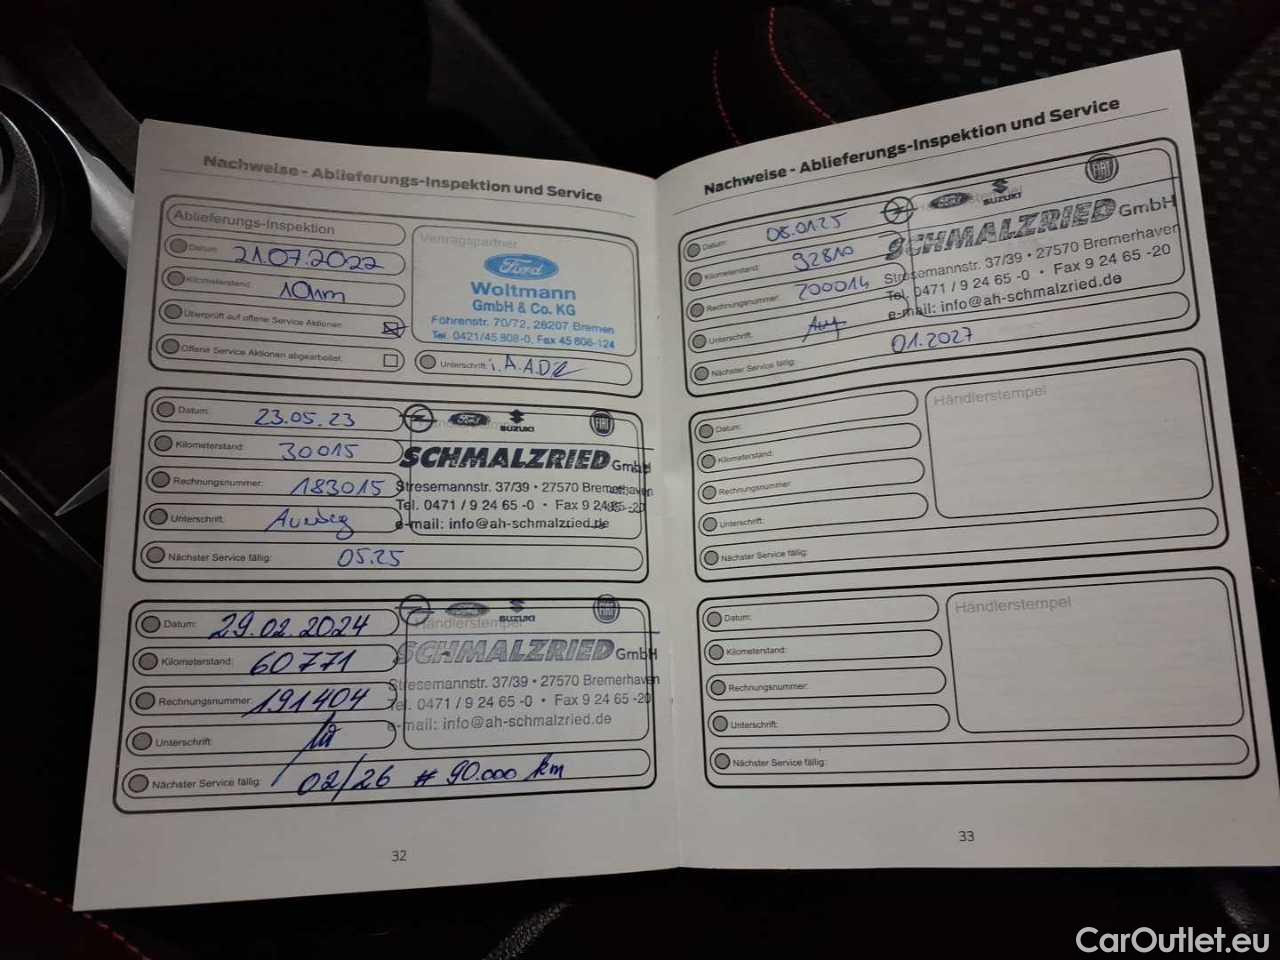 Nachweise - Ablieferungs-Inspektion und Service
Ablieferungs-Inspektion
Datum: 21.07.2022
Kilometerstand: 10km
Überprüft auf offene Service Aktionen:
Offene Service Aktionen abgearbeitet:
Vertragspartner
Ford
Woltmann
GmbH & Co. KG
Föhrenstr. 70/72, 28207 Bremen
Tel. 0421/45 808-0, Fax 45 808-124
Unterschrift:
Datum: 23.05.23
Kilometerstand: 30015
Rechnungsnummer: 183015
Unterschrift:
Nächster Service fällig: 05.25
Ford
SUZUKI
FIAT
SCHMALZRIED GmbH
Stresemannstr. 37/39 • 27570 Bremerhaven
Tel. 0471 / 9 24 65 -0 • Fax 9 24 65 -20
e-mail: info@ah-schmalzried.de
Datum: 29.02.2024
Kilometerstand: 60771
Rechnungsnummer: 191404
Unterschrift:
Nächster Service fällig: 02/26 # 90.000 km
Händlerstempel
Ford
SUZUKI
FIAT
SCHMALZRIED GmbH
Stresemannstr. 37/39 • 27570 Bremerhaven
Tel. 0471 / 9 24 65 -0 • Fax 9 24 65 -20
e-mail: info@ah-schmalzried.de
32
Nachweise - Ablieferungs-Inspektion und Service
Datum: 08.01.25
Kilometerstand: 92810
Rechnungsnummer: 200014
Unterschrift:
Nächster Service fällig: 01.2027
Händlerstempel
Ford
SUZUKI
FIAT
SCHMALZRIED GmbH
Stresemannstr. 37/39 • 27570 Bremerhaven
Tel. 0471 / 9 24 65 -0 • Fax 9 24 65 -20
e-mail: info@ah-schmalzried.de
Datum:
Kilometerstand:
Rechnungsnummer:
Unterschrift:
Nächster Service fällig:
Händlerstempel
Datum:
Kilometerstand:
Rechnungsnummer:
Unterschrift:
Nächster Service fällig:
Händlerstempel
33
CarOutlet.eu